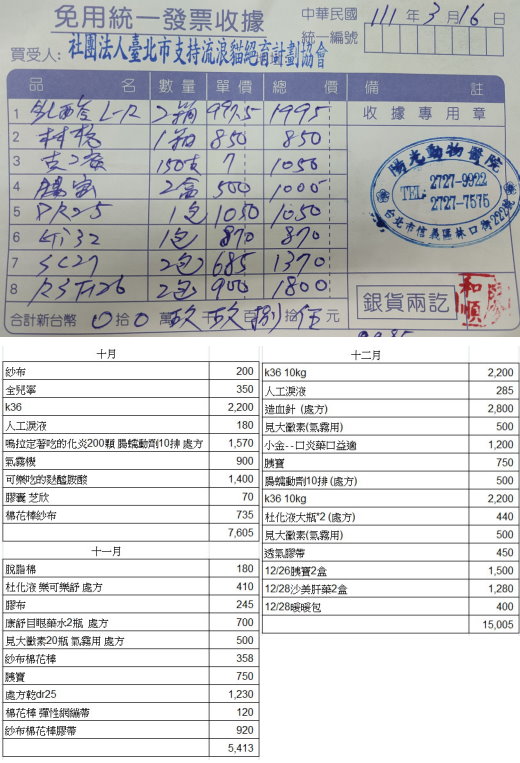 免用統一發票收據
中華民國 111 年 3 月 16 日
統一編號
買受人: 社團法人臺北市支持流浪貓絕育計劃協會
品名 數量 單價 總價 備註
1 L-R 2箱 997.5 1995
收據專用章
2 1箱 850 850
3 150支 7 1050
4 2盒 500 1000
5 1包 1050 1050
6 Gi32 1包 870 870
7 SC27 2包 685 1370
8 2包 900 1800
陽光動物醫院
TEL: 2727-9922
2727-7575
台北市信義區林口街222號
銀貨兩訖
和順
合計新台幣 0 拾 0 萬 玖 仟 玖 百 捌 拾 伍 元
十月
紗布 200
全兒寧 350
k36 2,200
人工淚液 180
嗚拉定著吃的化炎200顆 腸蠕動劑10排 處方 1,570
氣霧機 900
可樂吃的麩醯胺酸 1,400
膠囊 芝欣 70
棉花棒紗布 735
7,605
十一月
脫脂棉 180
杜化液 樂可樂舒 處方 410
膠布 245
康舒目眼藥水2瓶 處方 700
見大黴素20瓶 氣霧用 處方 500
紗布棉花棒 358
胰寶 750
處方乾dr25 1,230
棉花棒 彈性網繃帶 120
紗布棉花棒膠帶 920
5,413
十二月
k36 10kg 2,200
人工淚液 285
造血針 (處方) 2,800
見大黴素(氣霧用) 500
小金--口炎藥口益適 1,200
胰寶 750
腸蠕動劑10排 (處方) 500
k36 10kg 2,200
杜化液大瓶*2 (處方) 440
見大黴素(氣霧用) 500
透氣膠帶 450
12/26胰寶2盒 1,500
12/28沙美肝藥2盒 1,280
12/28暖暖包 400
15,005